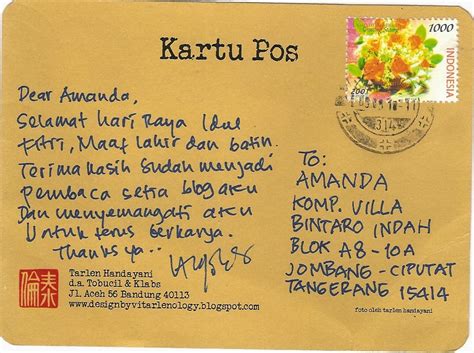 Kartu Pos
1000
INDONESIA
2001
314
Dear Amanda,
Selamat Hari Raya Idul
Fitri, Maaf lahir dan batin.
Terima kasih sudah menjadi
pembaca setia blog aku
Dan menyemangati aku
Untuk terus berkarya.
Thanks ya..
To:
AMANDA
KOMP. VILLA
BINTARO INDAH
BLOK A8-10A
JOMBANG - CIPUTAT
TANGERANG 15414
Tarlen Handayani
d.a. Tobucil & Klabs
Jl. Aceh 56 Bandung 40113
www.designbyvitarlenology.blogspot.com
foto oleh tarlen handayani